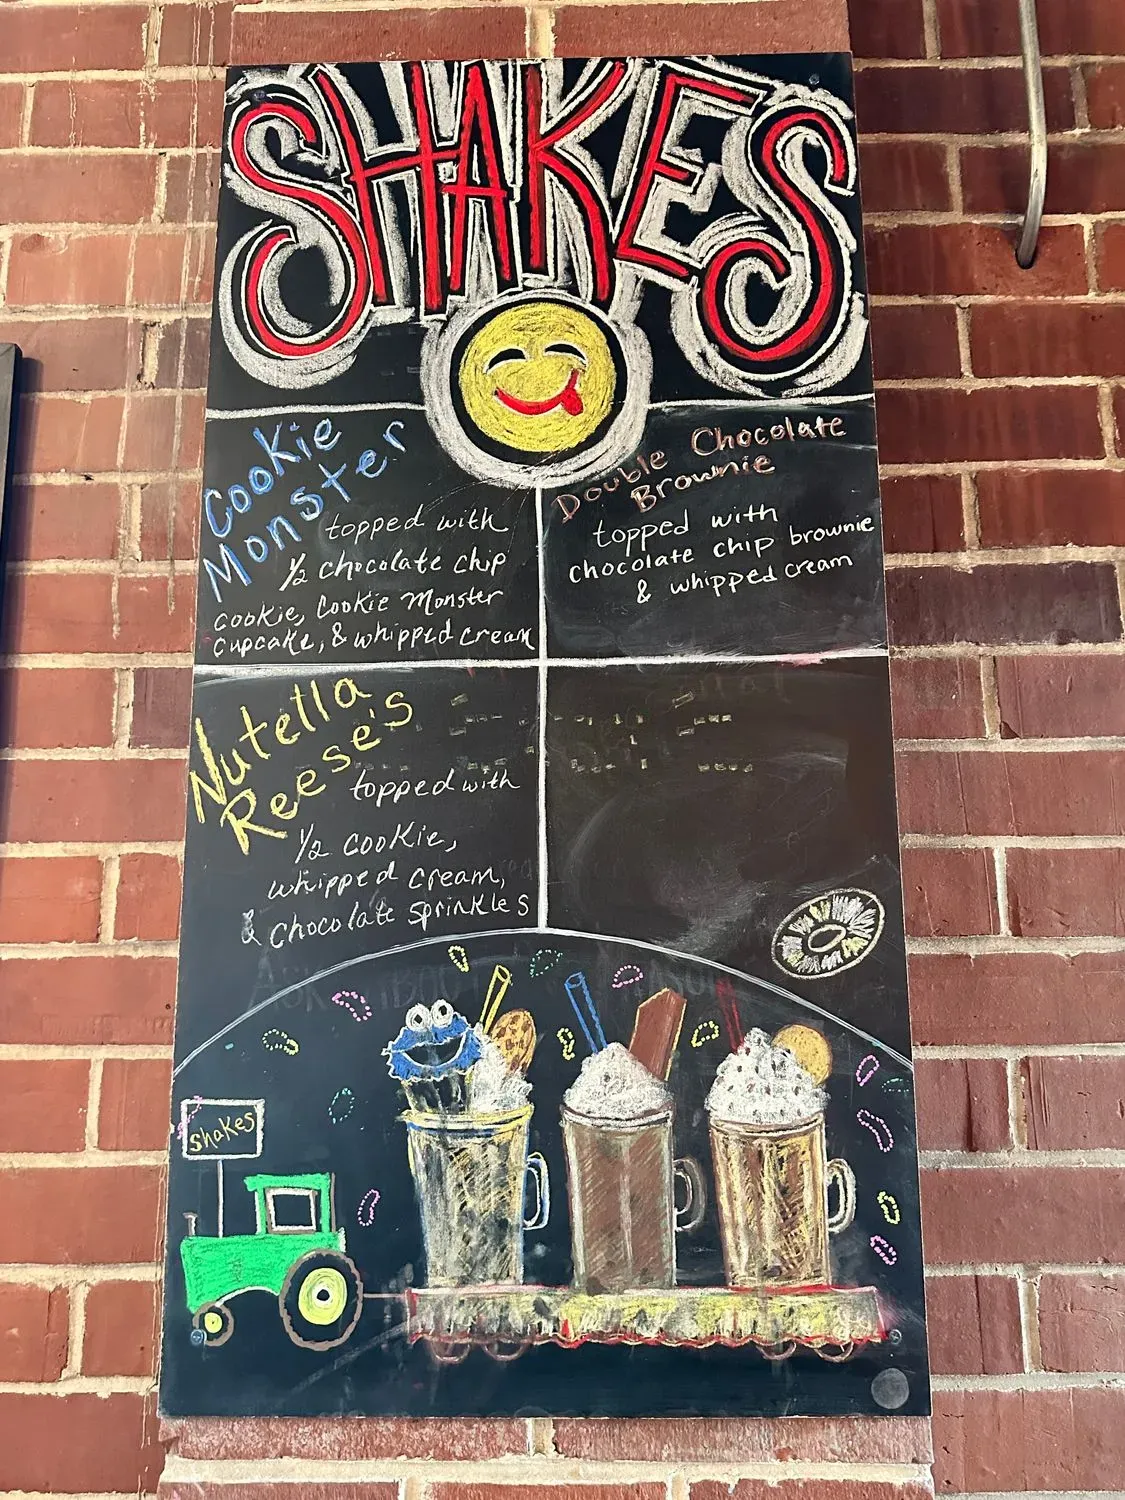 SHAKES
Cookie
Monster
topped with
½ chocolate chip
cookie, Cookie Monster
cupcake, & whipped cream
Double Chocolate
Brownie
topped with
chocolate chip brownie
& whipped cream
Nutella
Reese's
topped with
½ cookie,
whipped cream,
& chocolate sprinkles
Ask
shakes